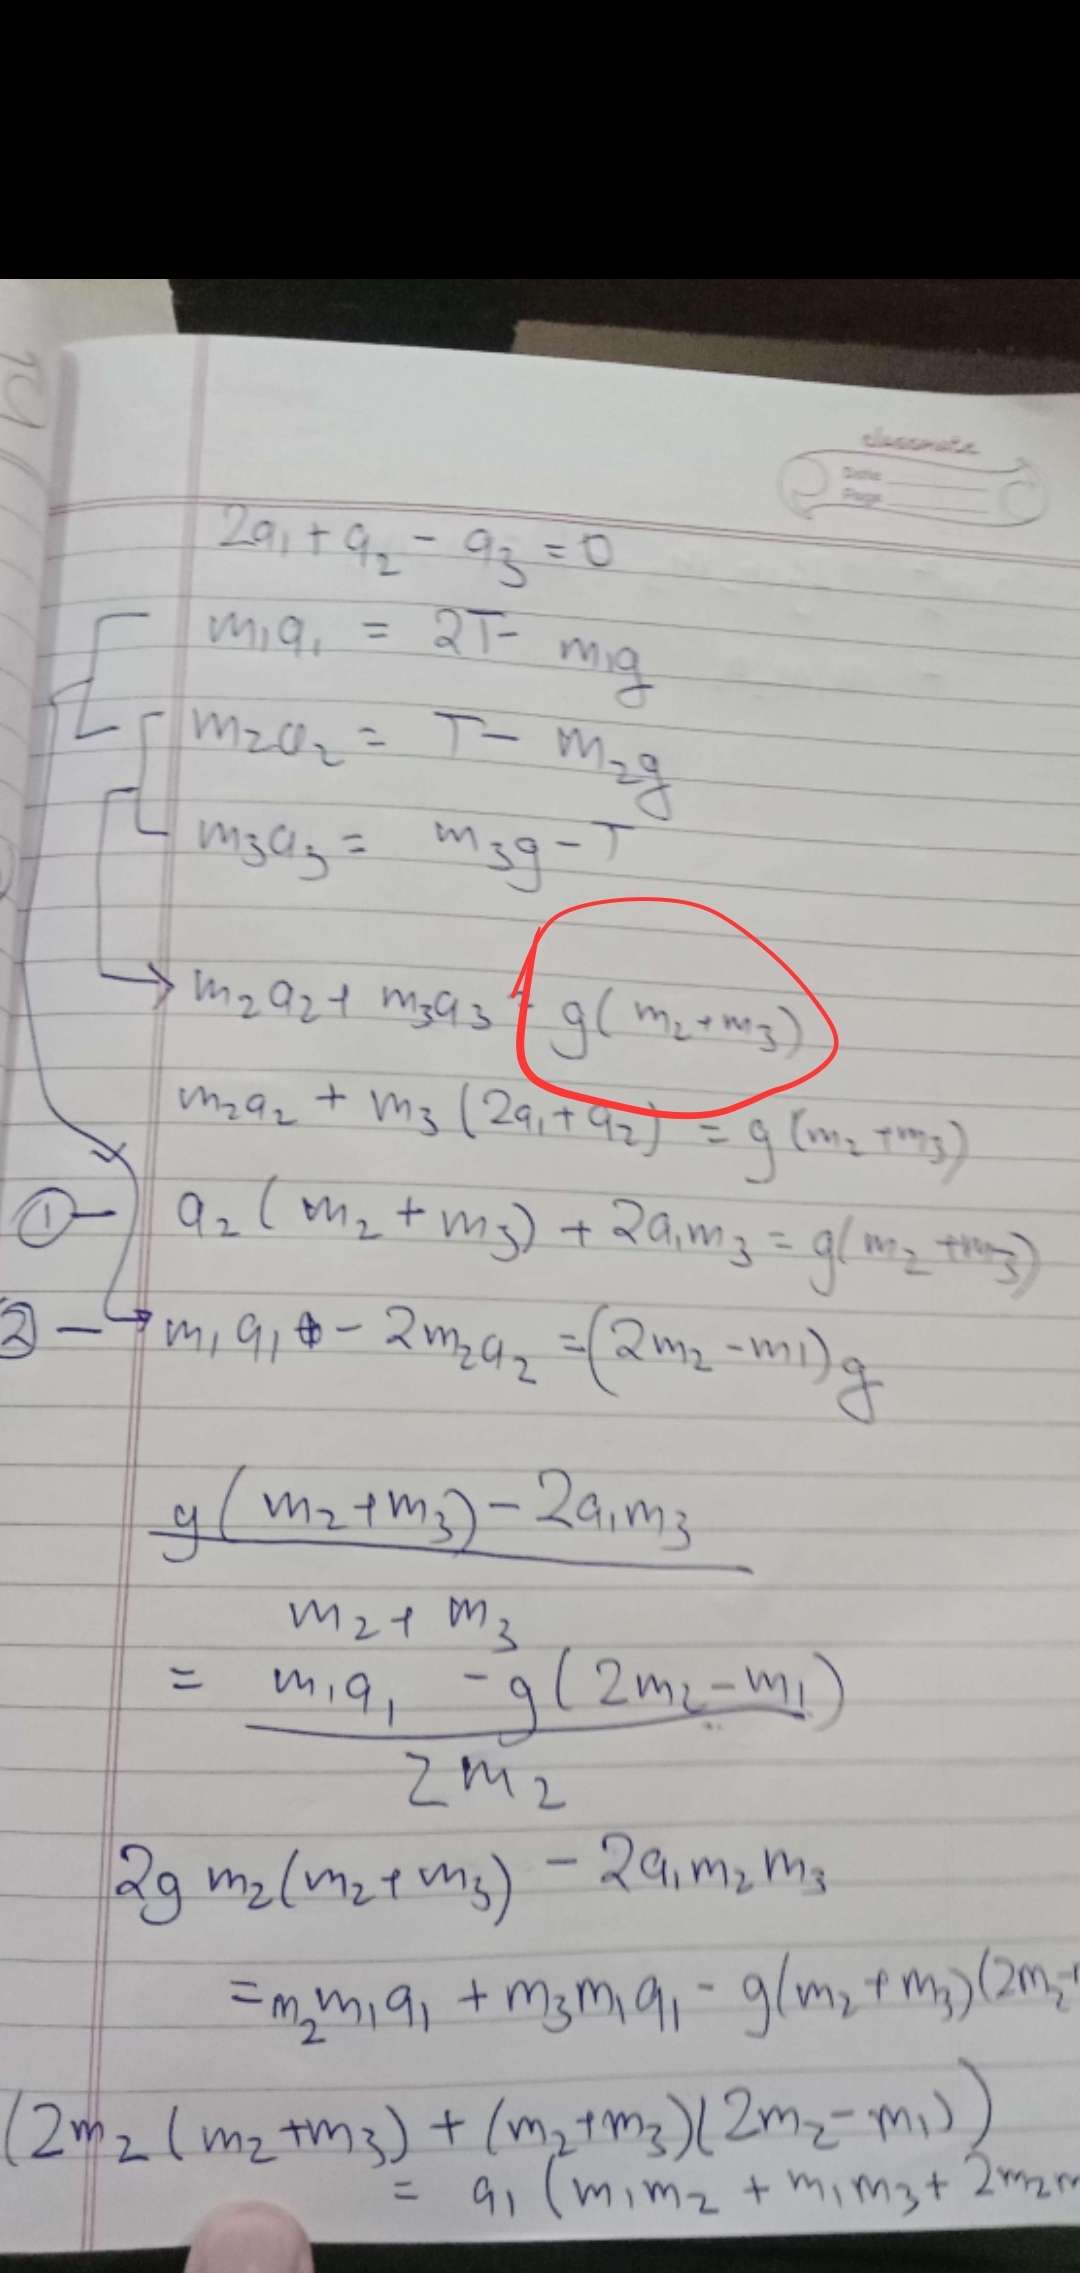 classmate
Date
Page
2a₁ + a₂ - a₃ = 0
m₁a₁ = 2T - m₁g
m₂a₂ = T - m₂g
m₃a₃ = m₃g - T
m₂a₂ + m₃a₃ = g(m₂+m₃)
m₂a₂ + m₃(2a₁+a₂) = g(m₂+m₃)
① - a₂(m₂+m₃) + 2a₁m₃ = g(m₂+m₃)
② - m₁a₁ - 2m₂a₂ = (2m₂-m₁)g
g(m₂+m₃) - 2a₁m₃
m₂+m₃
= m₁a₁ - g(2m₂-m₁)
2m₂
2g m₂(m₂+m₃) - 2a₁m₂m₃
= m₂m₁a₁ + m₃m₁a₁ - g(m₂+m₃)(2m₂-
(2m₂(m₂+m₃) + (m₂+m₃)(2m₂-m₁))
= a₁(m₁m₂ + m₁m₃ + 2m₂m